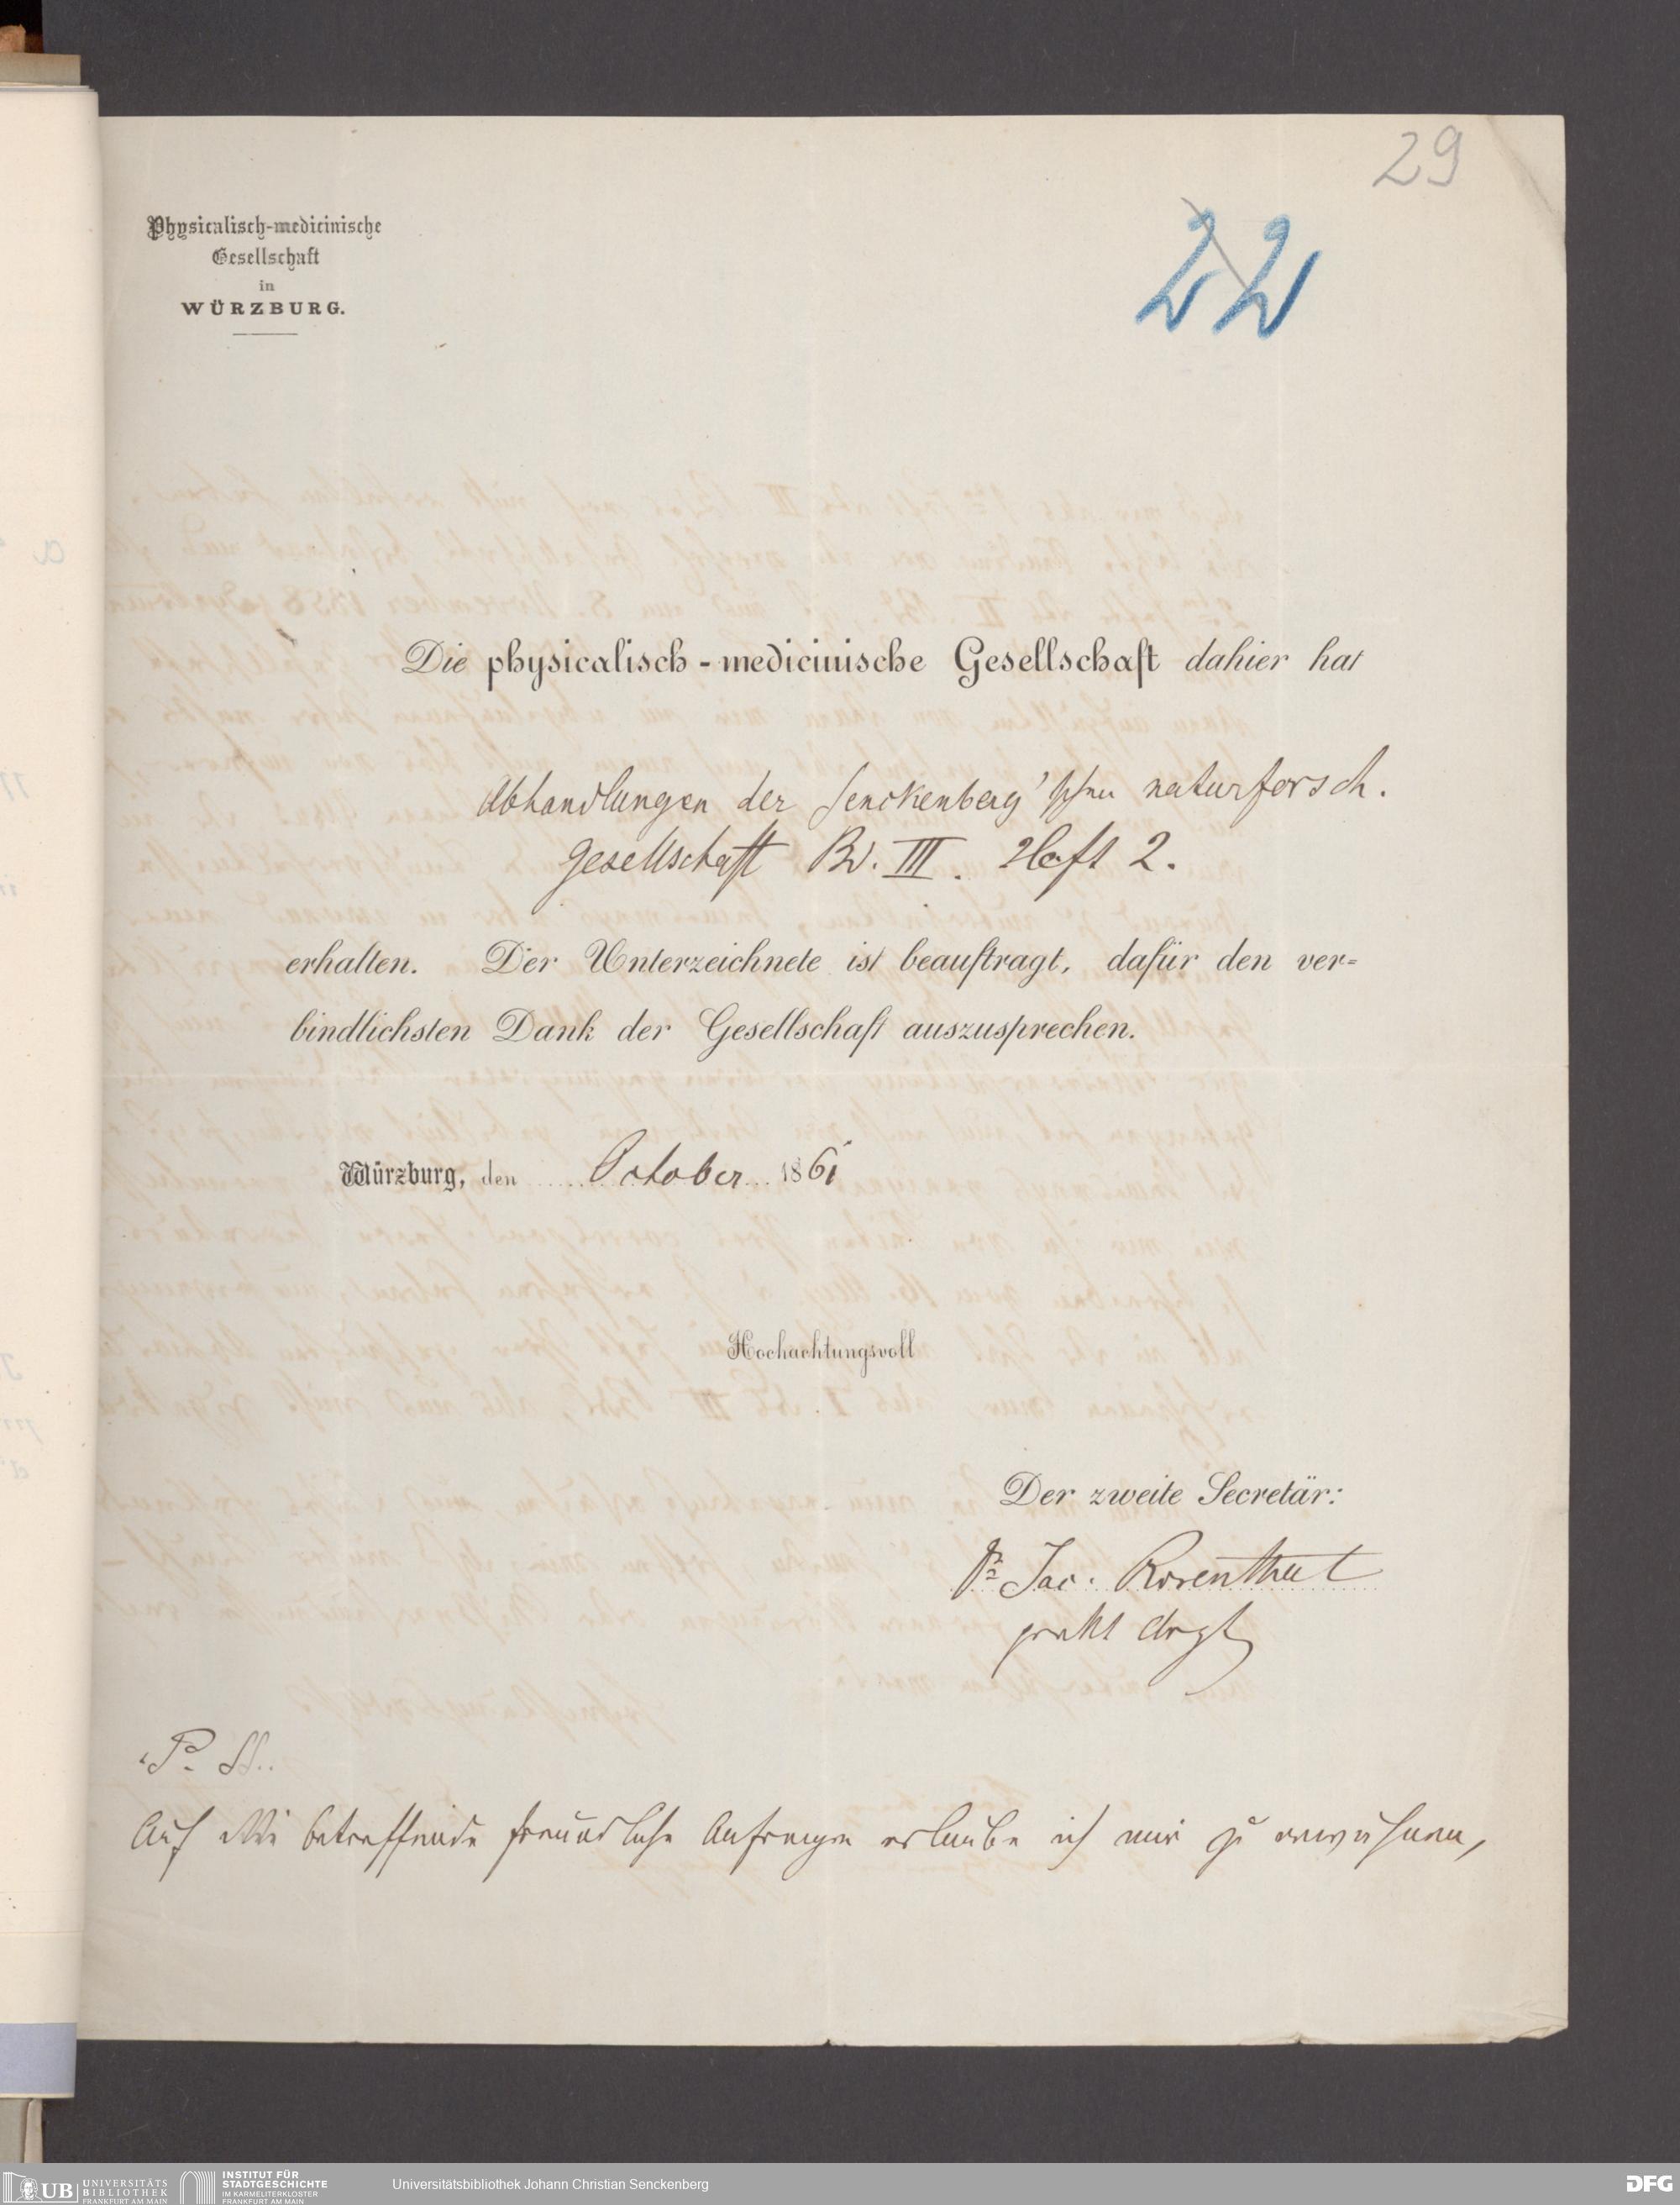 29
22
Physicalisch-medicinische
Gesellschaft
in
WÜRZBURG.
Die physicalisch-medicinische Gesellschaft dahier hat
Abhandlungen der Senckenberg'schen naturforsch.
Gesellschaft Bd. III. Heft 2.
erhalten. Der Unterzeichnete ist beauftragt, dafür den ver=
bindlichsten Dank der Gesellschaft auszusprechen.
Würzburg, den October 1861
Hochachtungsvoll
Der zweite Secretär:
Dr Jac. Rosenthal
prakt Arzt
P. S.
Auf die betreffende freundliche Anfrage erlaube ich mir zu erwähnen,
UB UNIVERSITÄTS
BIBLIOTHEK
FRANKFURT AM MAIN
INSTITUT FÜR
STADTGESCHICHTE
IM KARMELITERKLOSTER
FRANKFURT AM MAIN
Universitätsbibliothek Johann Christian Senckenberg
DFG